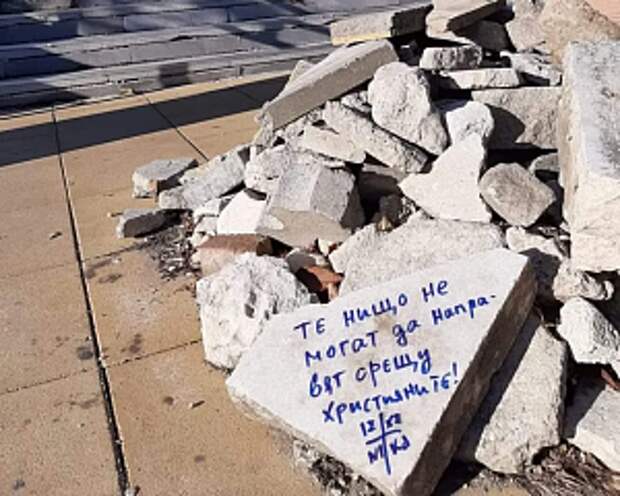 ТЕ нищо не
могат да напра-
вят срещу
християнитЕ!
NI KA